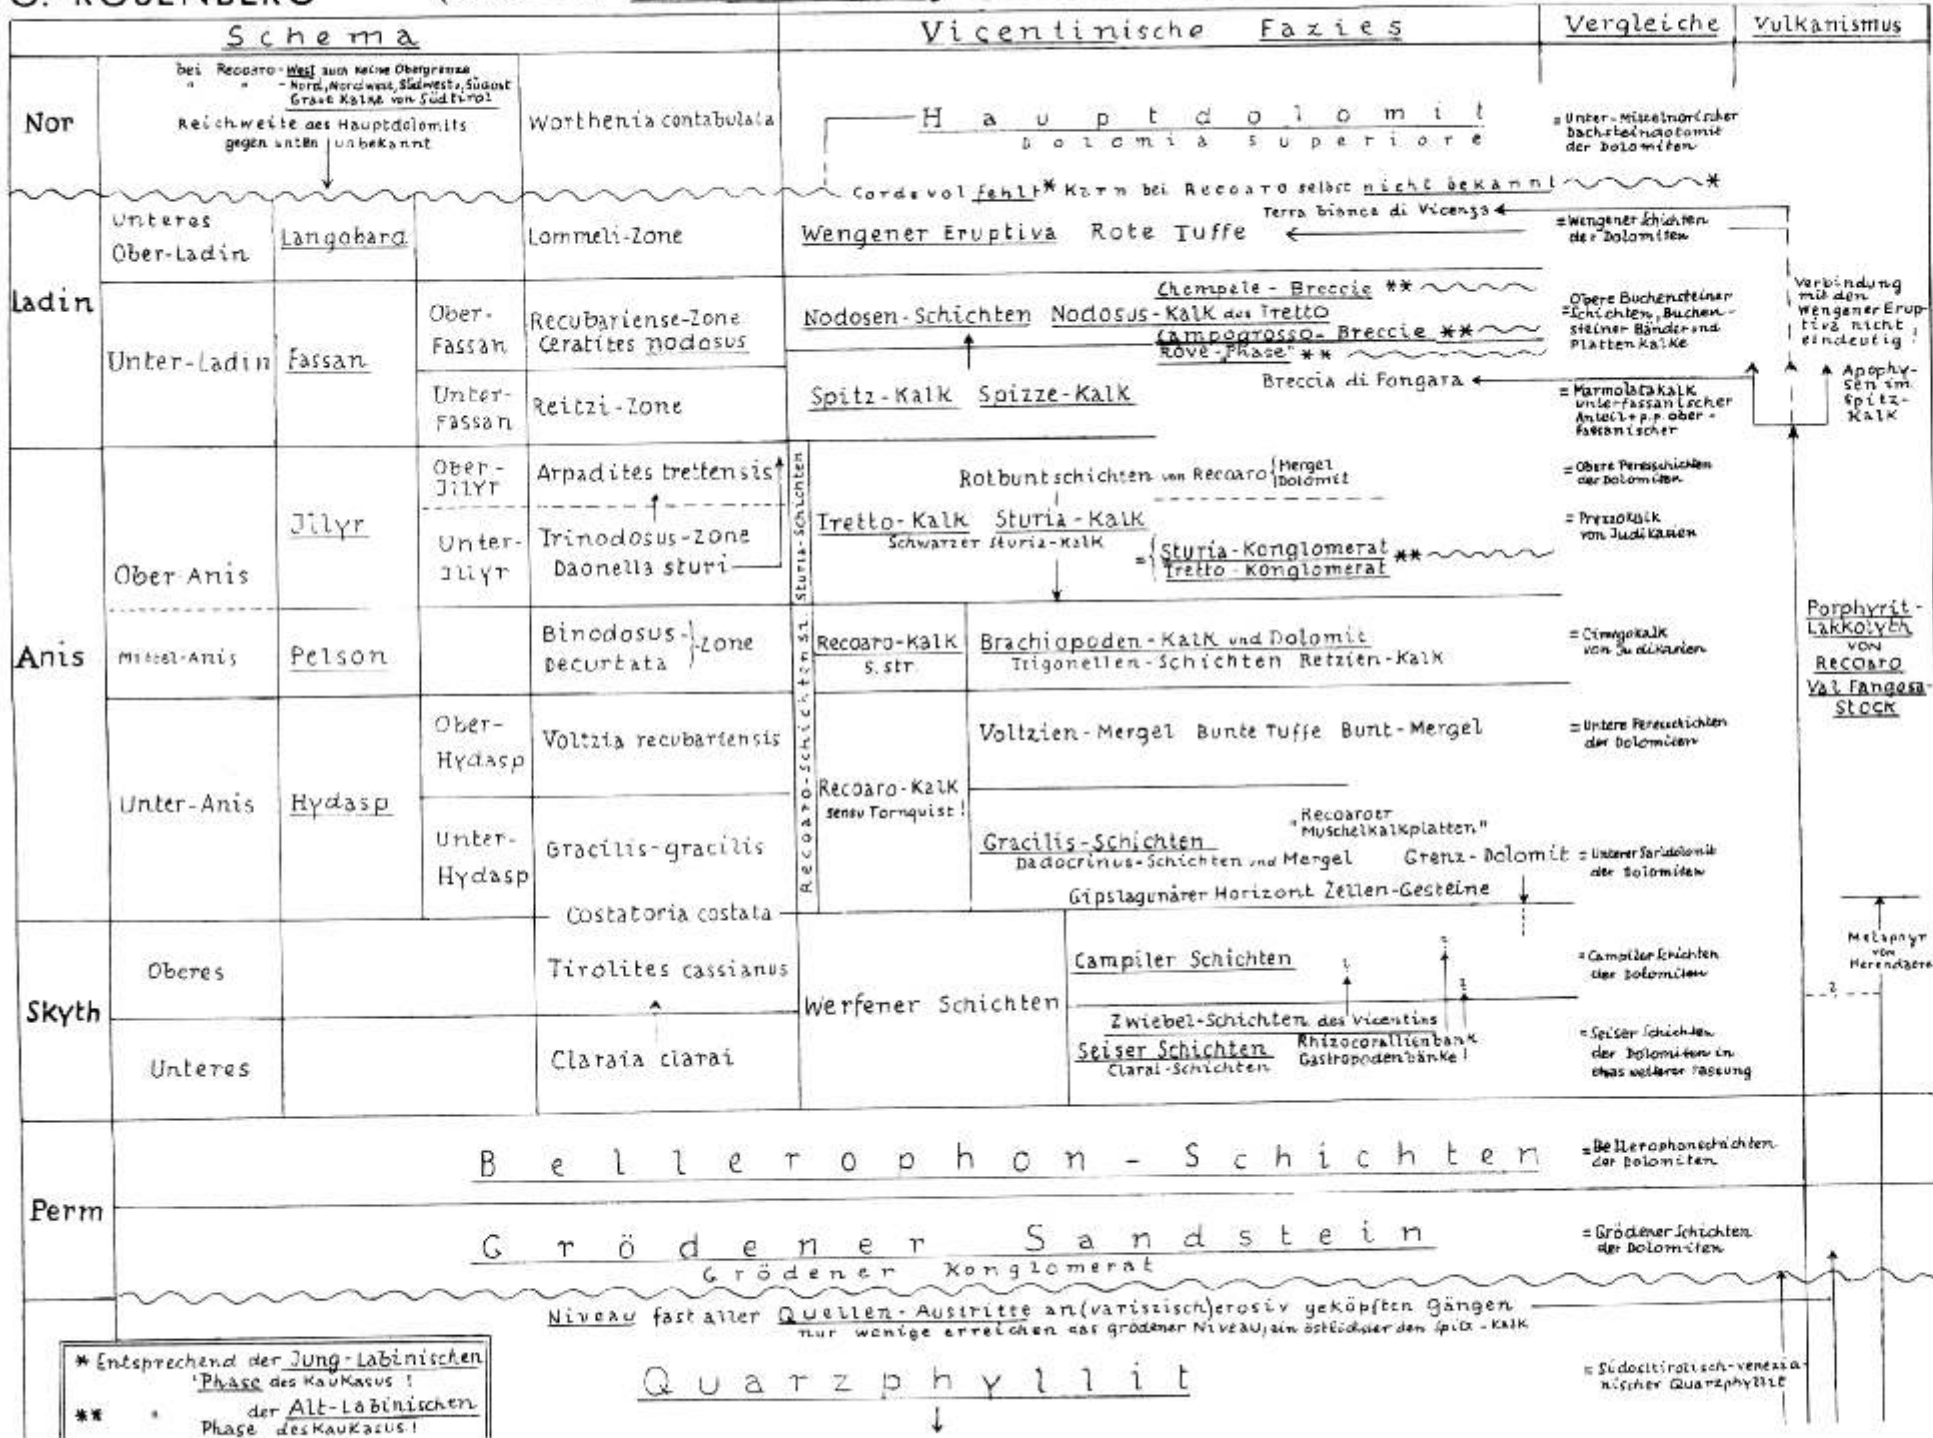 G. ROSENBERG
Schema
Vicentinische Fazies
Vergleiche
Vulkanismus
bei Recoaro-West auch keine Obergrenze
" " -Nord, Nordwest, Südwest, Südost
Graue Kalke von Südtirol
Nor
Reichweite des Hauptdolomits
gegen unten unbekannt
Worthenia contabulata
Hauptdolomit
Dolomia superiore
= Unter-Mittelnorischer
Dachsteindolomit
der Dolomiten
Cordevol fehlt* Karn bei Recoaro selbst nicht bekannt *
Ladin
Unteres
Ober-Ladin
Langobard
Lommeli-Zone
Wengener Eruptiva Rote Tuffe
Terra bianca di Vicenza
= Wengener Schichten
der Dolomiten
Unter-Ladin
Fassan
Ober-
Fassan
Recubariense-Zone
Ceratites nodosus
Nodosen-Schichten Nodosus-Kalk des Tretto
Chempele-Breccie **
Campogrosso-Breccie **
Rove-"Phase" **
Obere Buchensteiner
= Schichten, Buchen-
steiner Bänder und
Plattenkalke
Verbindung
mit den
Wengener Erup-
tiva nicht
eindeutig!
Unter-
Fassan
Reitzi-Zone
Spitz-Kalk Spizze-Kalk
Breccia di Fongara
= Marmolatakalk
unterfassanischer
Anteil + p.p. ober-
fassanischer
Apophy-
sen im
Spitz-
Kalk
Anis
Ober-Anis
Jllyr
Ober-
Jllyr
Arpadites trettensis
Sturia-Schichten
Rotbuntschichten von Recoaro { Mergel
Dolomit
= Obere Peresschichten
der Dolomiten
Unter-
Jllyr
Trinodosus-Zone
Daonella sturi
Tretto-Kalk Sturia-Kalk
Schwarzer Sturia-Kalk
= { Sturia-Konglomerat **
Tretto-Konglomerat
= Prezzokalk
von Judikarien
Mittel-Anis
Pelson
Binodosus-
Decurtata } Zone
Recoaro-Schichten s.l.
Recoaro-Kalk
s. str.
Brachiopoden-Kalk und Dolomit
Trigonellen-Schichten Retzien-Kalk
= Cimegokalk
von Judikarien
Porphyrit-
Lakkolyth
von
Recoaro
Val Fangosa-
Stock
Unter-Anis
Hydasp
Ober-
Hydasp
Voltzia recubariensis
Recoaro-Kalk
sensu Tornquist!
Voltzien-Mergel Bunte Tuffe Bunt-Mergel
= Untere Peresschichten
der Dolomiten
Unter-
Hydasp
Gracilis-gracilis
Gracilis-Schichten
Dadocrinus-Schichten und Mergel
"Recoaroer
Muschelkalkplatten"
Grenz-Dolomit
= Unterer Sarldolomit
der Dolomiten
Gipslagunärer Horizont Zellen-Gesteine
Costatoria costata
Skyth
Oberes
Tirolites cassianus
Werfener Schichten
Campiler Schichten
?
?
?
= Campiler Schichten
der Dolomiten
Melaphyr
von
?
Unteres
Claraia clarai
Zwiebel-Schichten des Vicentins
Seiser Schichten
Clarai-Schichten
Rhizocorallienbank
Gastropodenbänke!
= Seiser Schichten
der Dolomiten in
etwas weiterer Fassung
Perm
Bellerophon-Schichten
= Bellerophonschichten
der Dolomiten
Grödener Sandstein
Grödener Konglomerat
= Grödener Schichten
der Dolomiten
Niveau fast aller Quellen-Austritte an (variszisch) erosiv geköpften Gängen
nur wenige erreichen das grödener Niveau, ein östlichster den Spitz-Kalk
Quarzphyllit
= Südosttirolisch-venezia-
nischer Quarzphyllit
* Entsprechend der Jung-Labinischen
Phase des Kaukasus!
** " der Alt-Labinischen
Phase des Kaukasus!